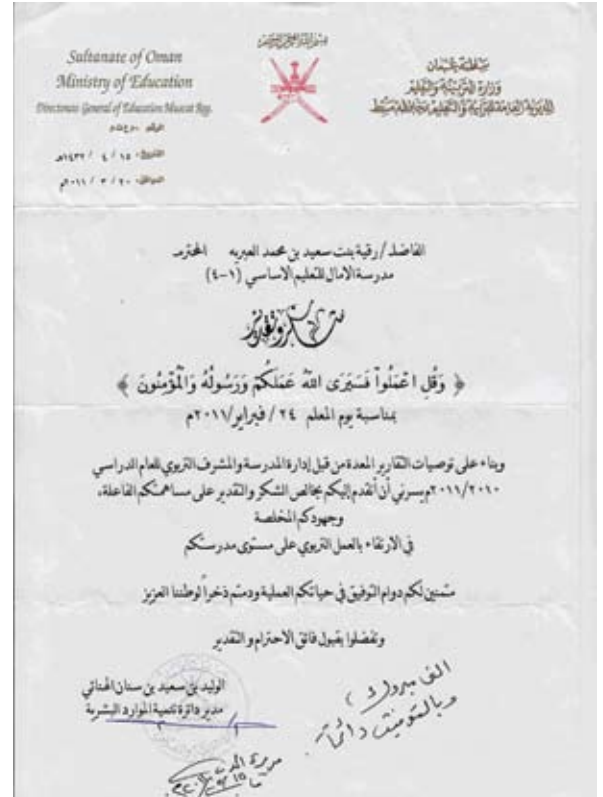 بسم الله الرحمن الرحيم
Sultanate of Oman
Ministry of Education
Directorate General of Education Muscat Reg.
سلطنة عمان
وزارة التربية والتعليم
المديرية العامة للتربية والتعليم بمحافظة مسقط
التاريخ: ١٥ / ٤ / ١٤٣٢هـ
الموافق: ٢٠ / ٣ / ٢٠١١م
الفاضلة / رقية بنت سعيد بن محمد العبريه المحترمه
مدرسة الامال للتعليم الاساسي (١-٤)
شكر وتقدير
﴿ وَقُلِ اعْمَلُواْ فَسَيَرَى اللّهُ عَمَلَكُمْ وَرَسُولُهُ وَالْمُؤْمِنُونَ ﴾
بمناسبة يوم المعلم ٢٤ / فبراير/٢٠١١م
وبناء على توصيات التقارير المعدة من قبل إدارة المدرسة والمشرف التربوي للعام الدراسي
٢٠١١/٢٠١٠م يسرني أن أتقدم إليكم بخالص الشكر والتقدير على مساهمتكم الفاعلة،
وجهودكم المخلصة
في الارتقاء بالعمل التربوي على مستوى مدرستكم
متمنين لكم دوام التوفيق في حياتكم العملية ودمتم ذخراً لوطننا العزيز
وتفضلوا بقبول فائق الاحترام والتقدير
الوليد بن سعيد بن سنان الهنائي
مدير دائرة تنمية الموارد البشرية
الف مبروك
وبالتوفيق دائماً